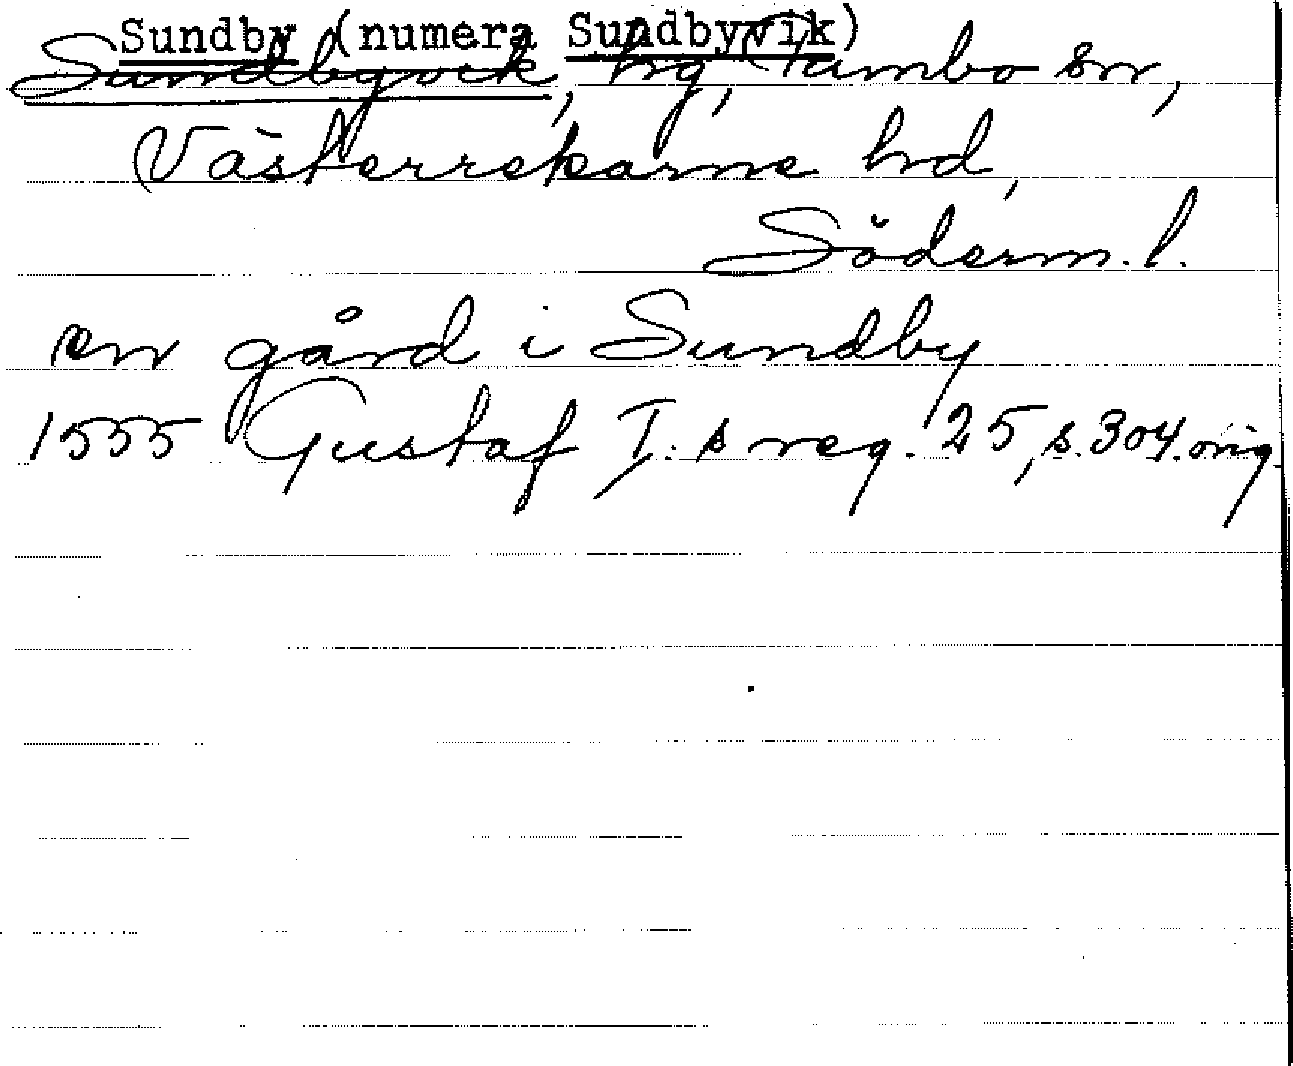 Sundby (numera Sundbyvik)
Sundbyvik, hg, Tumbo sn,
Västerrekarne hd,
Söderm. l.
en gård i Sundby
1555 Gustaf I:s reg. 25, s. 304. orig.